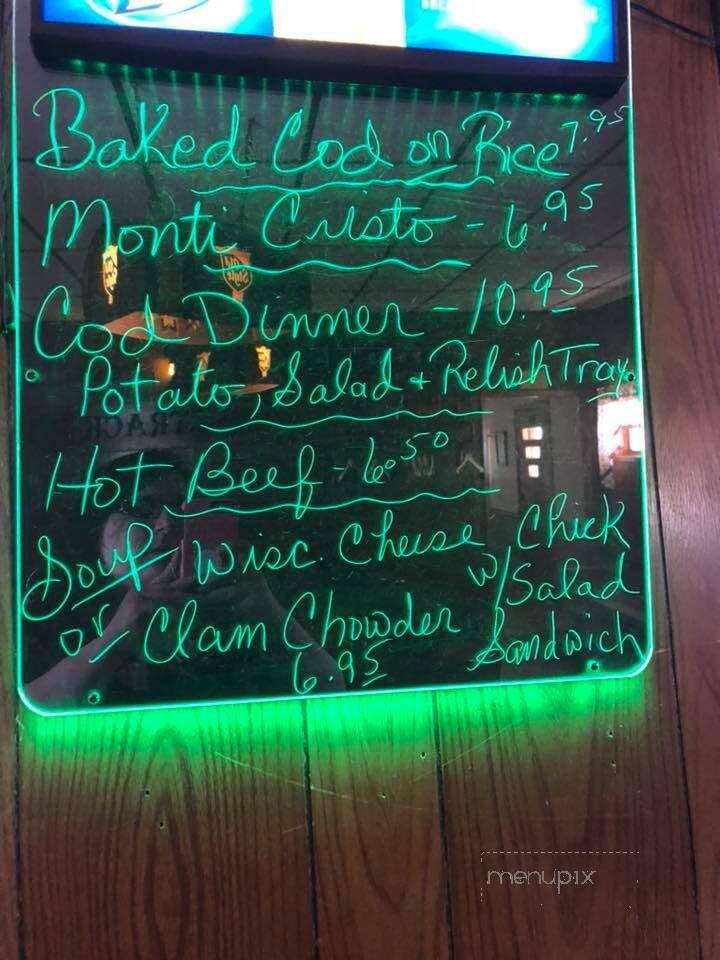 Baked Cod on Rice 7.95
Monti Cristo - 6.95
Cod Dinner - 10.95
Potato, Salad + Relish Tray
Hot Beef - 6.50
Soup Wisc. Cheese w/ Chick
or Clam Chowder Salad
6.95 Sandwich
Old Style
menupix